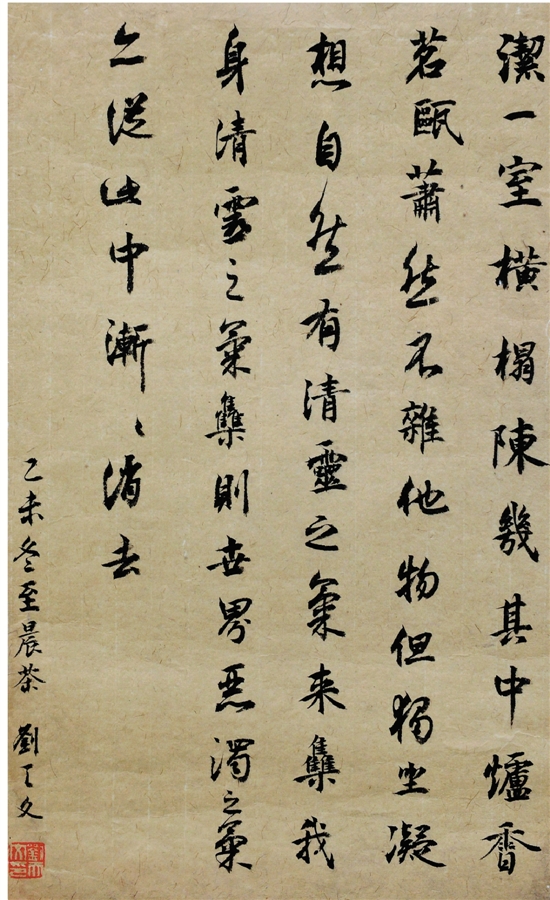 潔一室橫榻陳幾其中爐香
茗甌蕭然不雜他物但獨坐凝
想自然有清靈之氣来集我
身清靈之氣集則世界惡濁之氣
亦從此中漸〻消去
乙未冬至晨茶 劉文